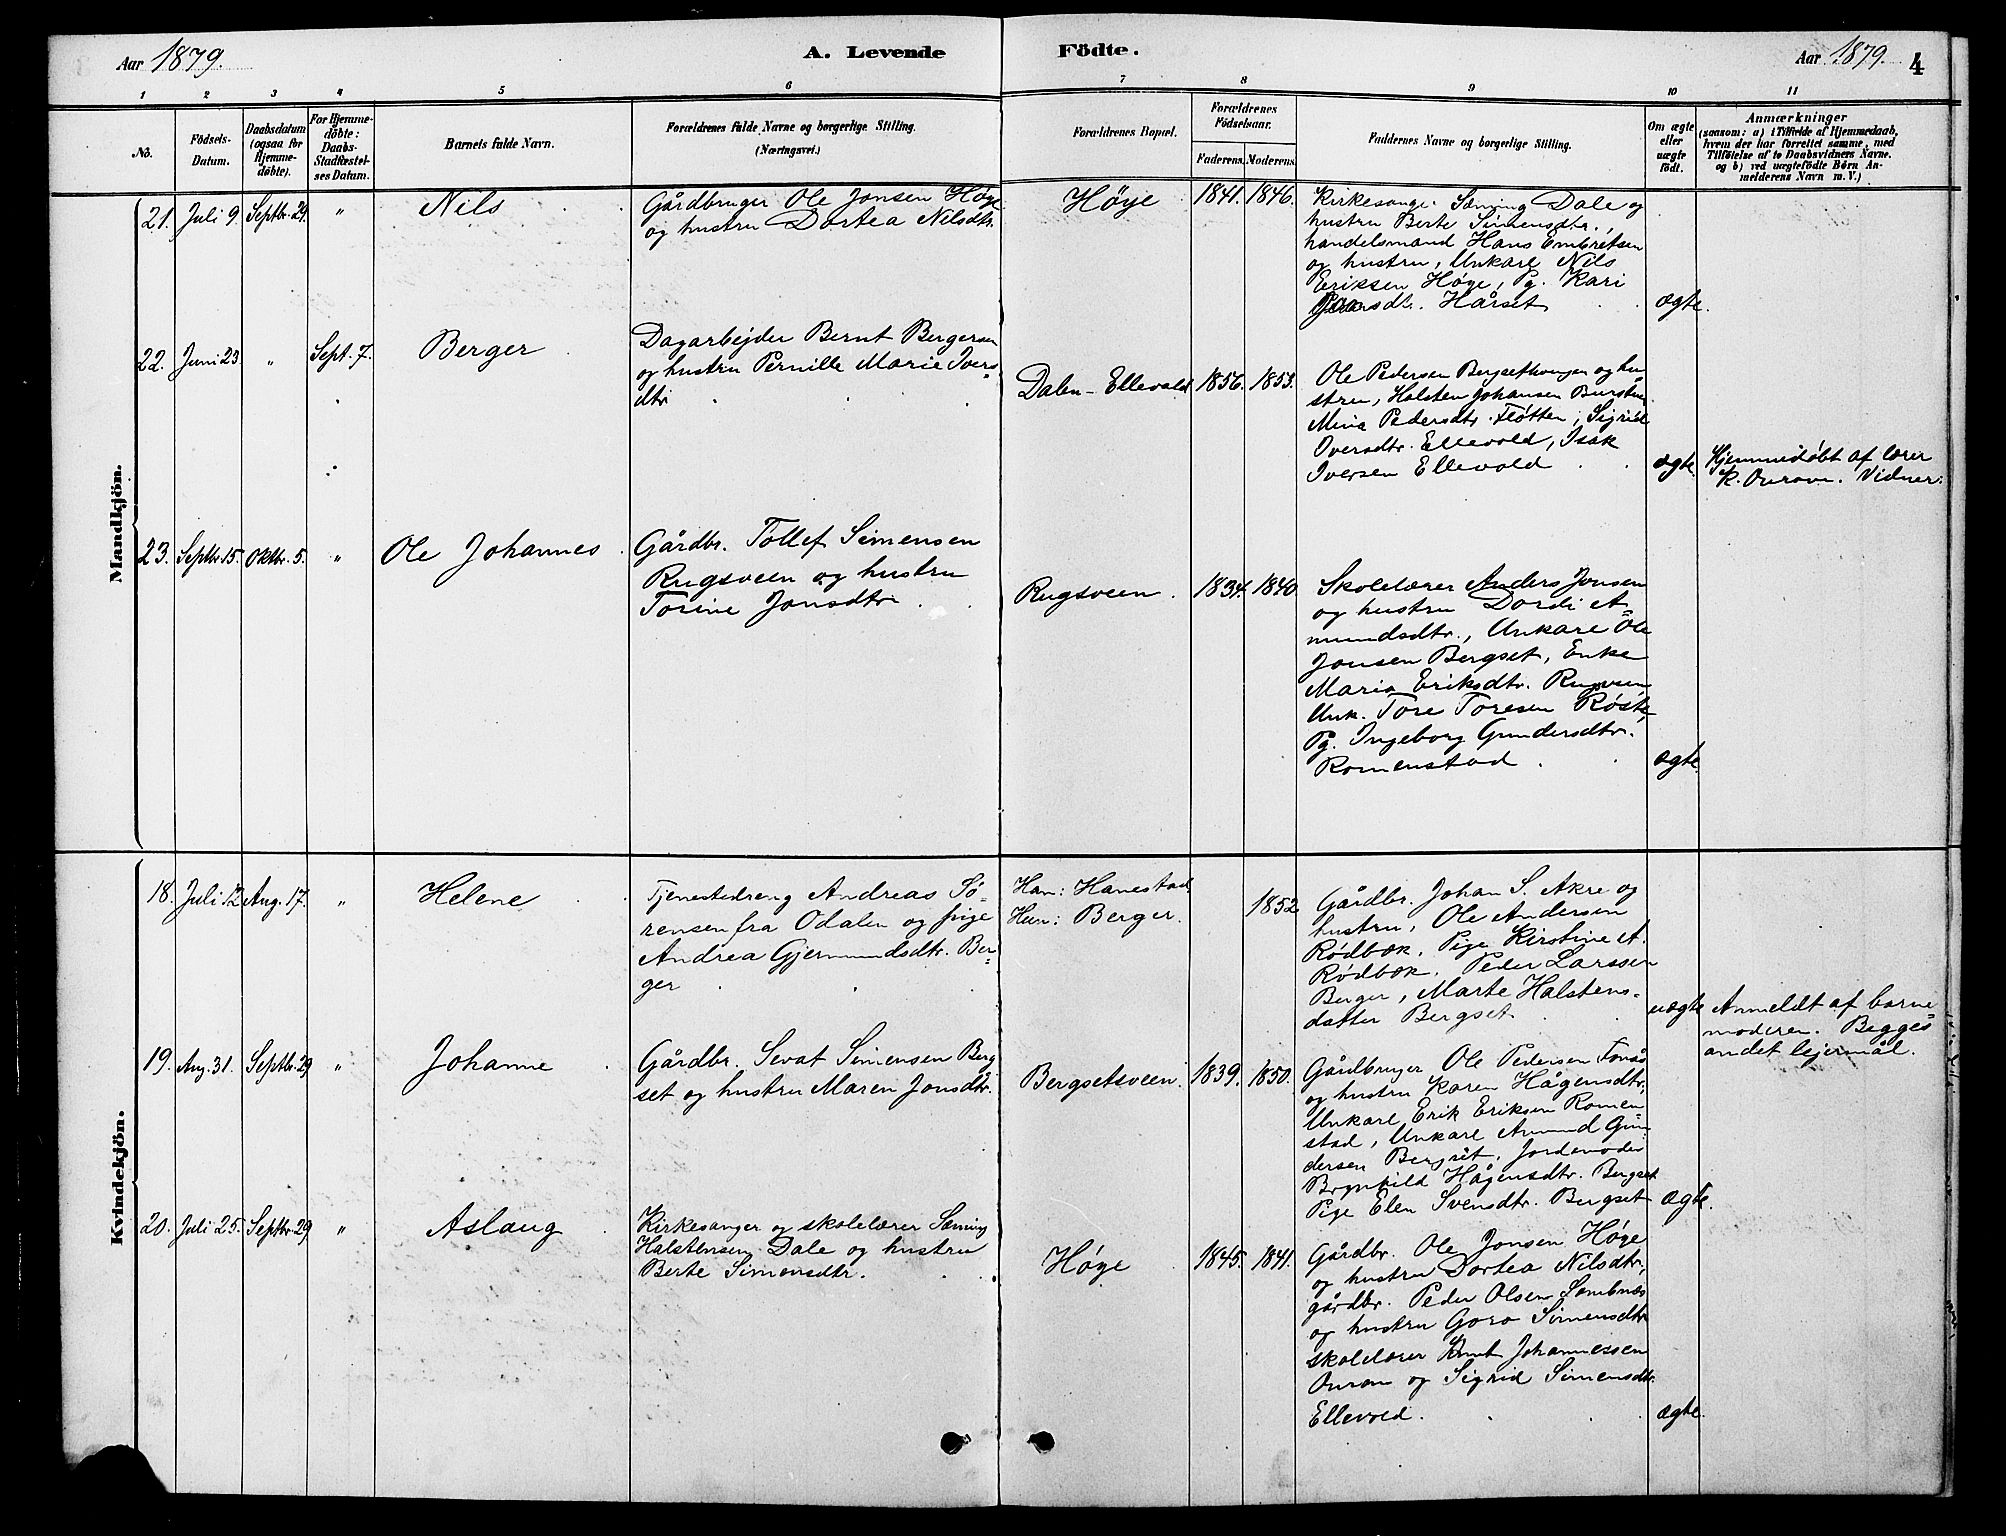 Aar 1879.
A. Levende
Födte.
Aar 1879.
4
1 2 3 4 5 6 7 8 9 10 11
No.
Födsels-
Datum.
Daabsdatum
(ogsaa for
Hjemme-
døbte).
For Hjemme-
døbte:
Daabs-
Stadfæstel-
ses Datum.
Barnets fulde Navn.
Forældrenes fulde Navne og borgerlige Stilling.
(Næringsvei.)
Forældrenes Bopæl.
Forældrenes
Födselsaar.
Faderens. Moderens.
Faddernes Navne og borgerlige Stilling.
Om ægte
eller
uægte
født.
Anmærkninger
(saasom: a) i Tilfælde af Hjemmedaab,
hvem der har forrettet samme, med
Tilföielse af to Daabsvidners Navne.
og b) ved uægtefödte Börn An-
melderens Navn m. V.)
Mandkjön.
21. Juli 9. Septbr. 29. "
Nils
Gårdbruger Ole Jonsen Høye
og hustru Dortea Nilsdtr.
Høye
1841. 1846.
Kirkesanger Sæming Dale og
hustru Berte Simensdtr.,
handelsmand Hans Embretsen
og hustru, Unkarl Nils
Eriksen Høye, Pg. Kari
Hårset
ægte.
22. Juni 23. " Sept. 7.
Berger
Dagarbejder Bernt Bergersen
og hustru Pernille Marie Ivers=
dtr
Dalen - Ellevold
1856. 1853.
Ole Pedersen og hu=
stru, Halsten Johansen
Mina Pedersdtr. Fløtten, Sigrid
Iversdtr. Ellevold, Isak
Iversen Ellevold
ægte.
Hjemmedøbt af lærer
K. Vidner:
23. Septbr. 15. Oktbr. 5. "
Ole Johannes
Gårdbr. Tollef Simensen
Rugsveen og hustru
Torine Jonsdtr.
Rugsveen
1834. 1840.
Skolelærer Anders Jonsen
og hustru Dordi A=
mundsdtr., Unkarl Ole
Jonsen Bergset, Enke
Maria Eriksdtr. Rugsveen
Unk. Tore Toresen Røste,
Pg. Ingeborg Gundersdtr.
Romenstad
ægte.
Kvindekjön.
18. Juli 12 Aug. 17. "
Helene
Tjenestedreng Andreas Sö-
rensen fra Odalen og pige
Andrea Gjermundsdtr. Ber=
ger
Han: Hanestad
Hun: Berger.
1852
Gårdbr. Johan S. Akre og
hustru, Ole Andersen
Rødbæk, Pige Kirstine A.
Rødbæk, Peder Larssen
Berger, Marte Halstens=
datter Bergset
uægte
Anmeldt af barne=
moderen. Begges
andet lejermål.
19. Aug. 31. Septbr. 29 "
Johanne
Gårdbr. Sevat Simensen Berg
set og hustru Maren Jonsdtr.
Bergsetsveen.
1839. 1850.
Gårdbruger Ole Pedersen Fonås
og hustru Karen Hågensdtr.,
Unkarl Erik Eriksen Romen=
stad, Unkarl Amund Gun=
dersen Bergset, Jordemoder
Brynhild Hågensdtr. Bergset
Pige Elen Svensdtr. Bergset
ægte.
20. Juli 25. Septbr. 29 "
Aslaug
Kirkesanger og skolelærer Sæming
Halstensen Dale og hustru
Berte Simensdtr.
Høye
1845. 1841.
Gårdbr. Ole Jonsen Høye
og hustru Dortea Nilsdtr.,
gårdbr. Peder Olsen
og hustru Goro Simensdtr
skolelærer Knut Johannessen
og Sigrid Simensdtr.
Ellevold.
ægte.